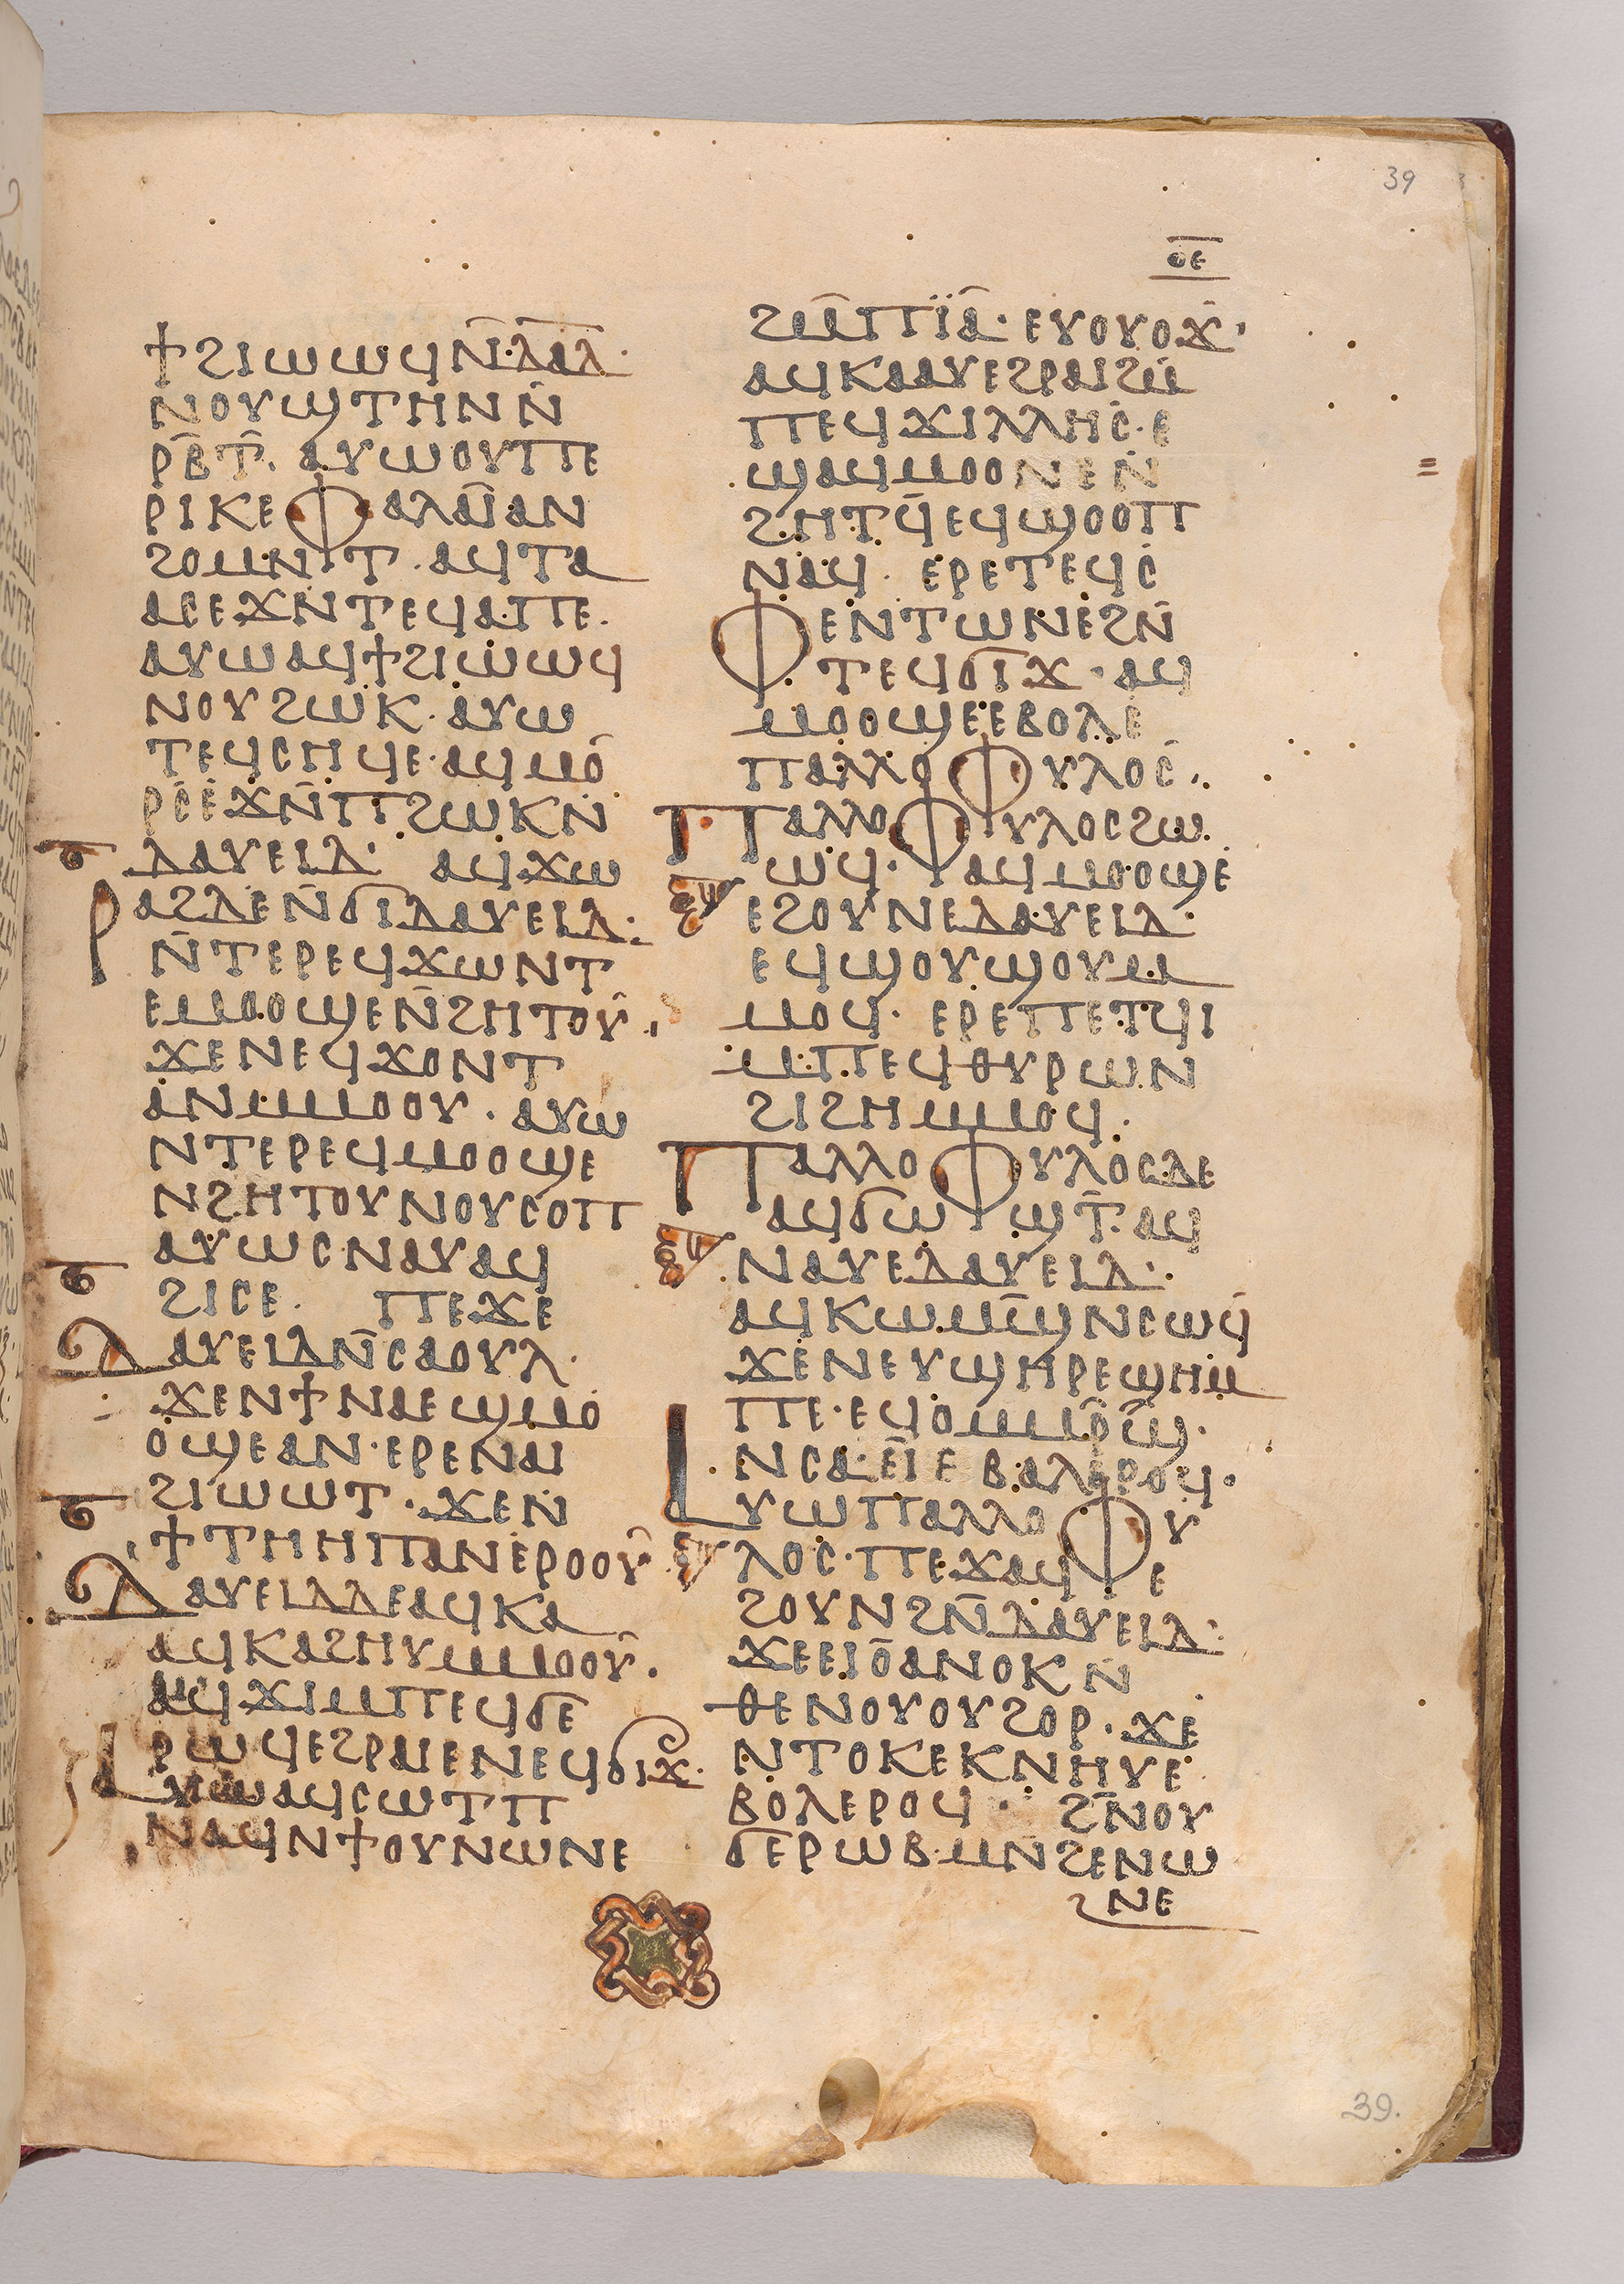 39
ⲟⲉ
ϯϩⲓⲱⲱϥⲛ̄ⲇⲁⲇ·
ⲛⲟⲩϣⲧⲏⲛⲛ̄
ⲣ̄ⲃ̄ⲧ̄. ⲁⲩⲱⲟⲩⲡⲉ
ⲣⲓⲕⲉⲫⲁⲗⲁⲓⲁⲛ
ϩⲟⲙⲛⲧ. ⲁϥⲧⲁ
ⲁⲥⲉϫⲛⲧⲉϥⲁⲡⲉ.
ⲁⲩⲱⲁϥϯϩⲓⲱⲱϥ
ⲛⲟⲩϩⲱⲕ. ⲁⲩⲱ
ⲧⲉϥⲥⲏϥⲉ. ⲁϥⲙⲟ
ⲣⲥ̄ⲉϫⲛ̄ⲡϩⲱⲕⲛ
ⲇⲁⲩⲉⲓⲇ· ⲁϥϫⲱ
ⲣⲁϩⲇⲉⲛ̄ϭⲓⲇⲁⲩⲉⲓⲇ:
ⲛ̄ⲧⲉⲣⲉϥϫⲱⲛⲧ
ⲉⲙⲟⲟϣⲉⲛ̄ϩⲏⲧⲟⲩ.
ϫⲉⲛⲉϥϫⲟⲛⲧ
ⲁⲛⲙⲙⲟⲟⲩ. ⲁⲩⲱ
ⲛⲧⲉⲣⲉϥⲙⲟⲟϣⲉ
ⲛϩⲏⲧⲟⲩⲛⲟⲩⲥⲟⲡ
ⲁⲩⲱⲥⲛⲁⲩⲁϥ
ϩⲓⲥⲉ. ⲡⲉϫⲉ
ⲇⲁⲩⲉⲓⲇⲛ̄ⲥⲁⲟⲩⲗ.
ϫⲉⲛϯⲛⲁⲉϣⲙⲟ
ⲟϣⲉⲁⲛ. ⲉⲣⲉⲛⲁⲓ
ϩⲓⲱⲱⲧ. ϫⲉⲛ
ϯⲧⲏⲏⲡⲁⲛⲉⲣⲟⲟⲩ
ⲇⲁⲩⲉⲓⲇⲇⲉⲁϥⲕⲁ
ⲁϥⲕⲁϩⲏⲩⲙⲙⲟⲟⲩ.
ⲁϥϫⲓⲙⲡⲉϥϭⲉ
ⲣⲱϥⲉϩⲣⲁⲓⲉⲛⲉϥϭⲓϫ.
ⲁⲩⲱⲁϥⲥⲱⲧⲡ
ⲛⲁϥⲛϯⲟⲩⲛⲱⲛⲉ
ϩⲙ̄ⲡⲓ̈ⲁ̄· ⲉⲩⲟⲩⲟϫ·
ⲁϥⲕⲁⲁⲩⲉϩⲣⲁⲓϩⲙ̄
ⲡⲉϥϫⲓⲗⲗⲏⲥ. ⲉ
ϣⲁϥⲙⲟⲟⲛⲉⲛ̄
ϩⲏⲧϥ̄ⲉϥϣⲟⲟⲡ
ⲛⲁϥ. ⲉⲣⲉⲧⲉϥⲥ
ⲫⲉⲛⲧⲱⲛⲉϩⲛ̄
ⲧⲉϥϭⲓϫ. ⲁϥ
ⲙⲟⲟϣⲉⲉⲃⲟⲗⲉ
ⲡⲁⲗⲗⲟⲫⲩⲗⲟⲥ.
ⲡⲁⲗⲗⲟⲫⲩⲗⲟⲥϩⲱ
ⲱϥ. ⲁϥⲙⲟⲟϣⲉ
ⲉϩⲟⲩⲛⲉⲇⲁⲩⲉⲓⲇ·
ⲉϥϣⲟⲩϣⲟⲩⲙ
ⲙⲟϥ. ⲉⲣⲉⲡⲉⲧϥⲓ
ⲙⲡⲉϥⲑⲩⲣⲱⲛ
ϩⲓϩⲏⲙⲙⲟϥ.
ⲡⲁⲗⲗⲟⲫⲩⲗⲟⲥⲇⲉ
ⲁϥϭⲱϣⲧ̄. ⲁϥ
ⲛⲁⲩⲉⲇⲁⲩⲉⲓⲇ·
ⲁϥⲕⲱⲙ̄ϣⲛⲥⲱϥ
ϫⲉⲛⲉⲩϣⲏⲣⲉϣⲏⲙ
ⲡⲉ. ⲉϥⲟⲙⲙⲣ̄ϣ̄.
ⲛⲥⲁ·ⲉⲓⲉⲃⲁⲗⲉⲣⲟϥ.
ⲁⲩⲱⲡⲁⲗⲗⲟⲫⲩ
ⲗⲟⲥ. ⲡⲉϫⲁϥⲉ
ϩⲟⲩⲛϩⲛ̄ⲇⲁⲩⲉⲓⲇ:
ϫⲉⲉⲓⲟ̄ⲁⲛⲟⲕⲛ̄
ⲑⲉⲛⲟⲩⲟⲩϩⲟⲣ. ϫⲉ
ⲛⲧⲟⲕⲉⲕⲛⲏⲩⲉ
ⲃⲟⲗⲉⲣⲟϥ. ϩⲛ̄ⲟⲩ
ϭⲉⲣⲱⲃ·ⲙⲛ̄ϩⲉⲛⲱ
ⲛⲉ
39.